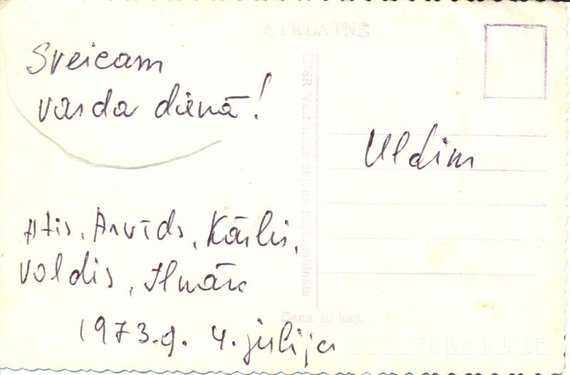 Sveicam
vārda dienā!
Uldim
Atis, Arvīds, Kārlis,
Voldis, Ilmārs
1973.g. 4. jūlijā
ATKLĀTNE
Cena 10 kap.